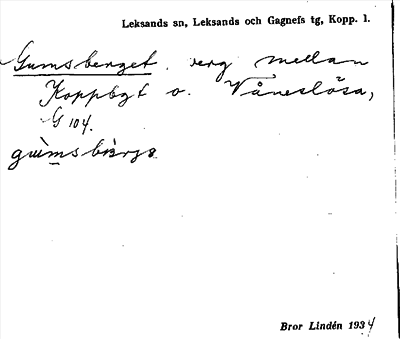 Leksands sn, Leksands och Gagnefs tg, Kopp. l.
Gumsberget, berg mellan
Koppbyt o. Våneslösa,
G 104.
gùmsbærjə
Bror Lindén 1934